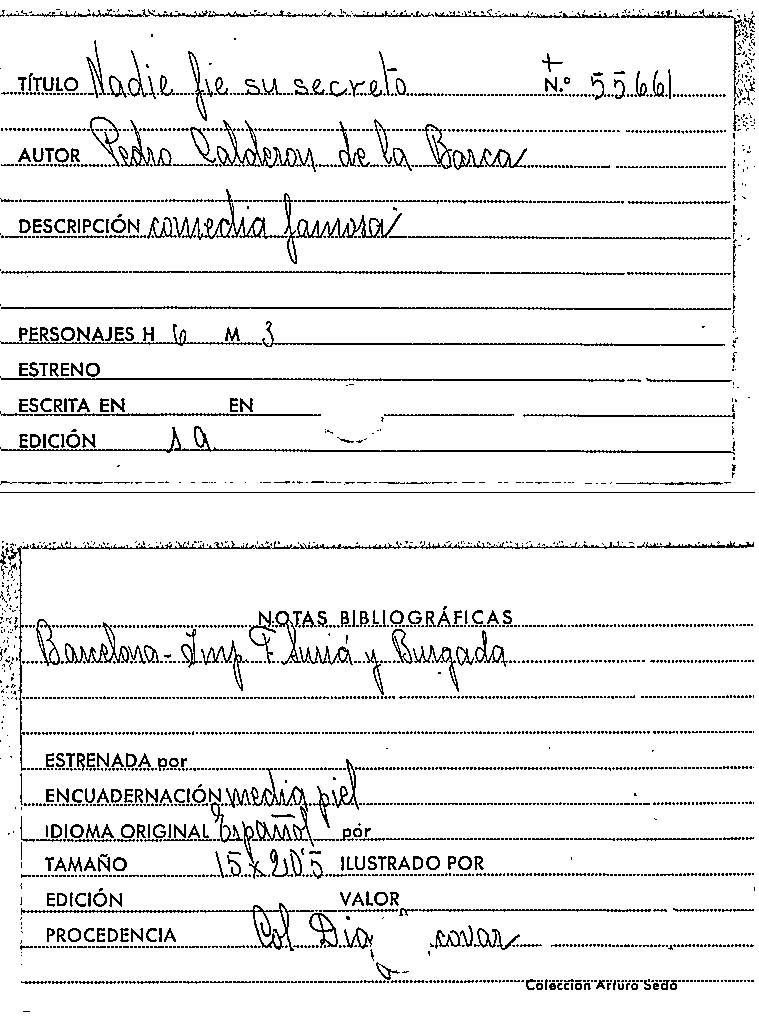 TÍTULO Nadie fie su secreto N.º 55661
AUTOR Pedro Calderon de la Barca
DESCRIPCIÓN comedia famosa
PERSONAJES H 6 M 3
ESTRENO
ESCRITA EN EN
EDICIÓN s a
NOTAS BIBLIOGRÁFICAS
Barcelona - Imp F Suriá y Burgada
ESTRENADA por
ENCUADERNACIÓN media piel
IDIOMA ORIGINAL Español por
TAMAÑO 15 x 20'5 ILUSTRADO POR
EDICIÓN VALOR
PROCEDENCIA Col Dia covar
Colección Arturo Sedó